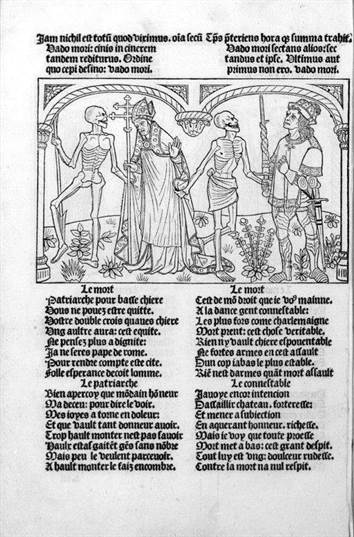 Jam nichil est totū quod viximus. oīa secū Tp̄s p̄teriens hora qs summa trahit.
Vado mori: cinis in cinerem
tandem rediturus. Ordine
quo cepi desino: vado mori.
Vado mori sectans alios: sec
tandus et ipse. Ultimus aut
primus non ero. vado mori.
Le mort
Patriarche pour basse chiere
Vous ne pouez estre quitte.
Vostre double croix quauez chiere
Ung aultre aura: cest equite.
Ne pensez plus a dignite:
Ja ne serez pape de rome.
Pour rendre compte este cite.
Folle esperance decoit lomme.
Le patriarche
Bien apercoy que mōdain hōneur
Ma deceu: pour dire le voir.
Mes ioyes a torne en doleur:
Et que vault tant donneur auoir.
Trop hault monter nest pas sauoir
Haulx estas gaitēt gēs sans nōbre
Mais peu le veulent parceuoir.
A hault monter le faiz encombre.
Le mort
Cest de mō droit que ie voꝰ mainne.
A la dance gent connestable:
Les plus fors come charlemaigne
Mort prent: cest chose veritable.
Rien ny vault chiere espouentable
Ne fortes armes en cest assault
Dun cop iabas le plus estable.
Riē nest darmes quāt mort assault
Le connestable
Jauoye encor intencion
Dassaillir chateau. forteresse:
Et mener a subiection
En aquerant honneur. richesse.
Mais ie voy que toute proesse
Mort met a bas: cest grant despit.
Tout luy est vng: doulceur rudesse.
Contre la mort na nul respit.